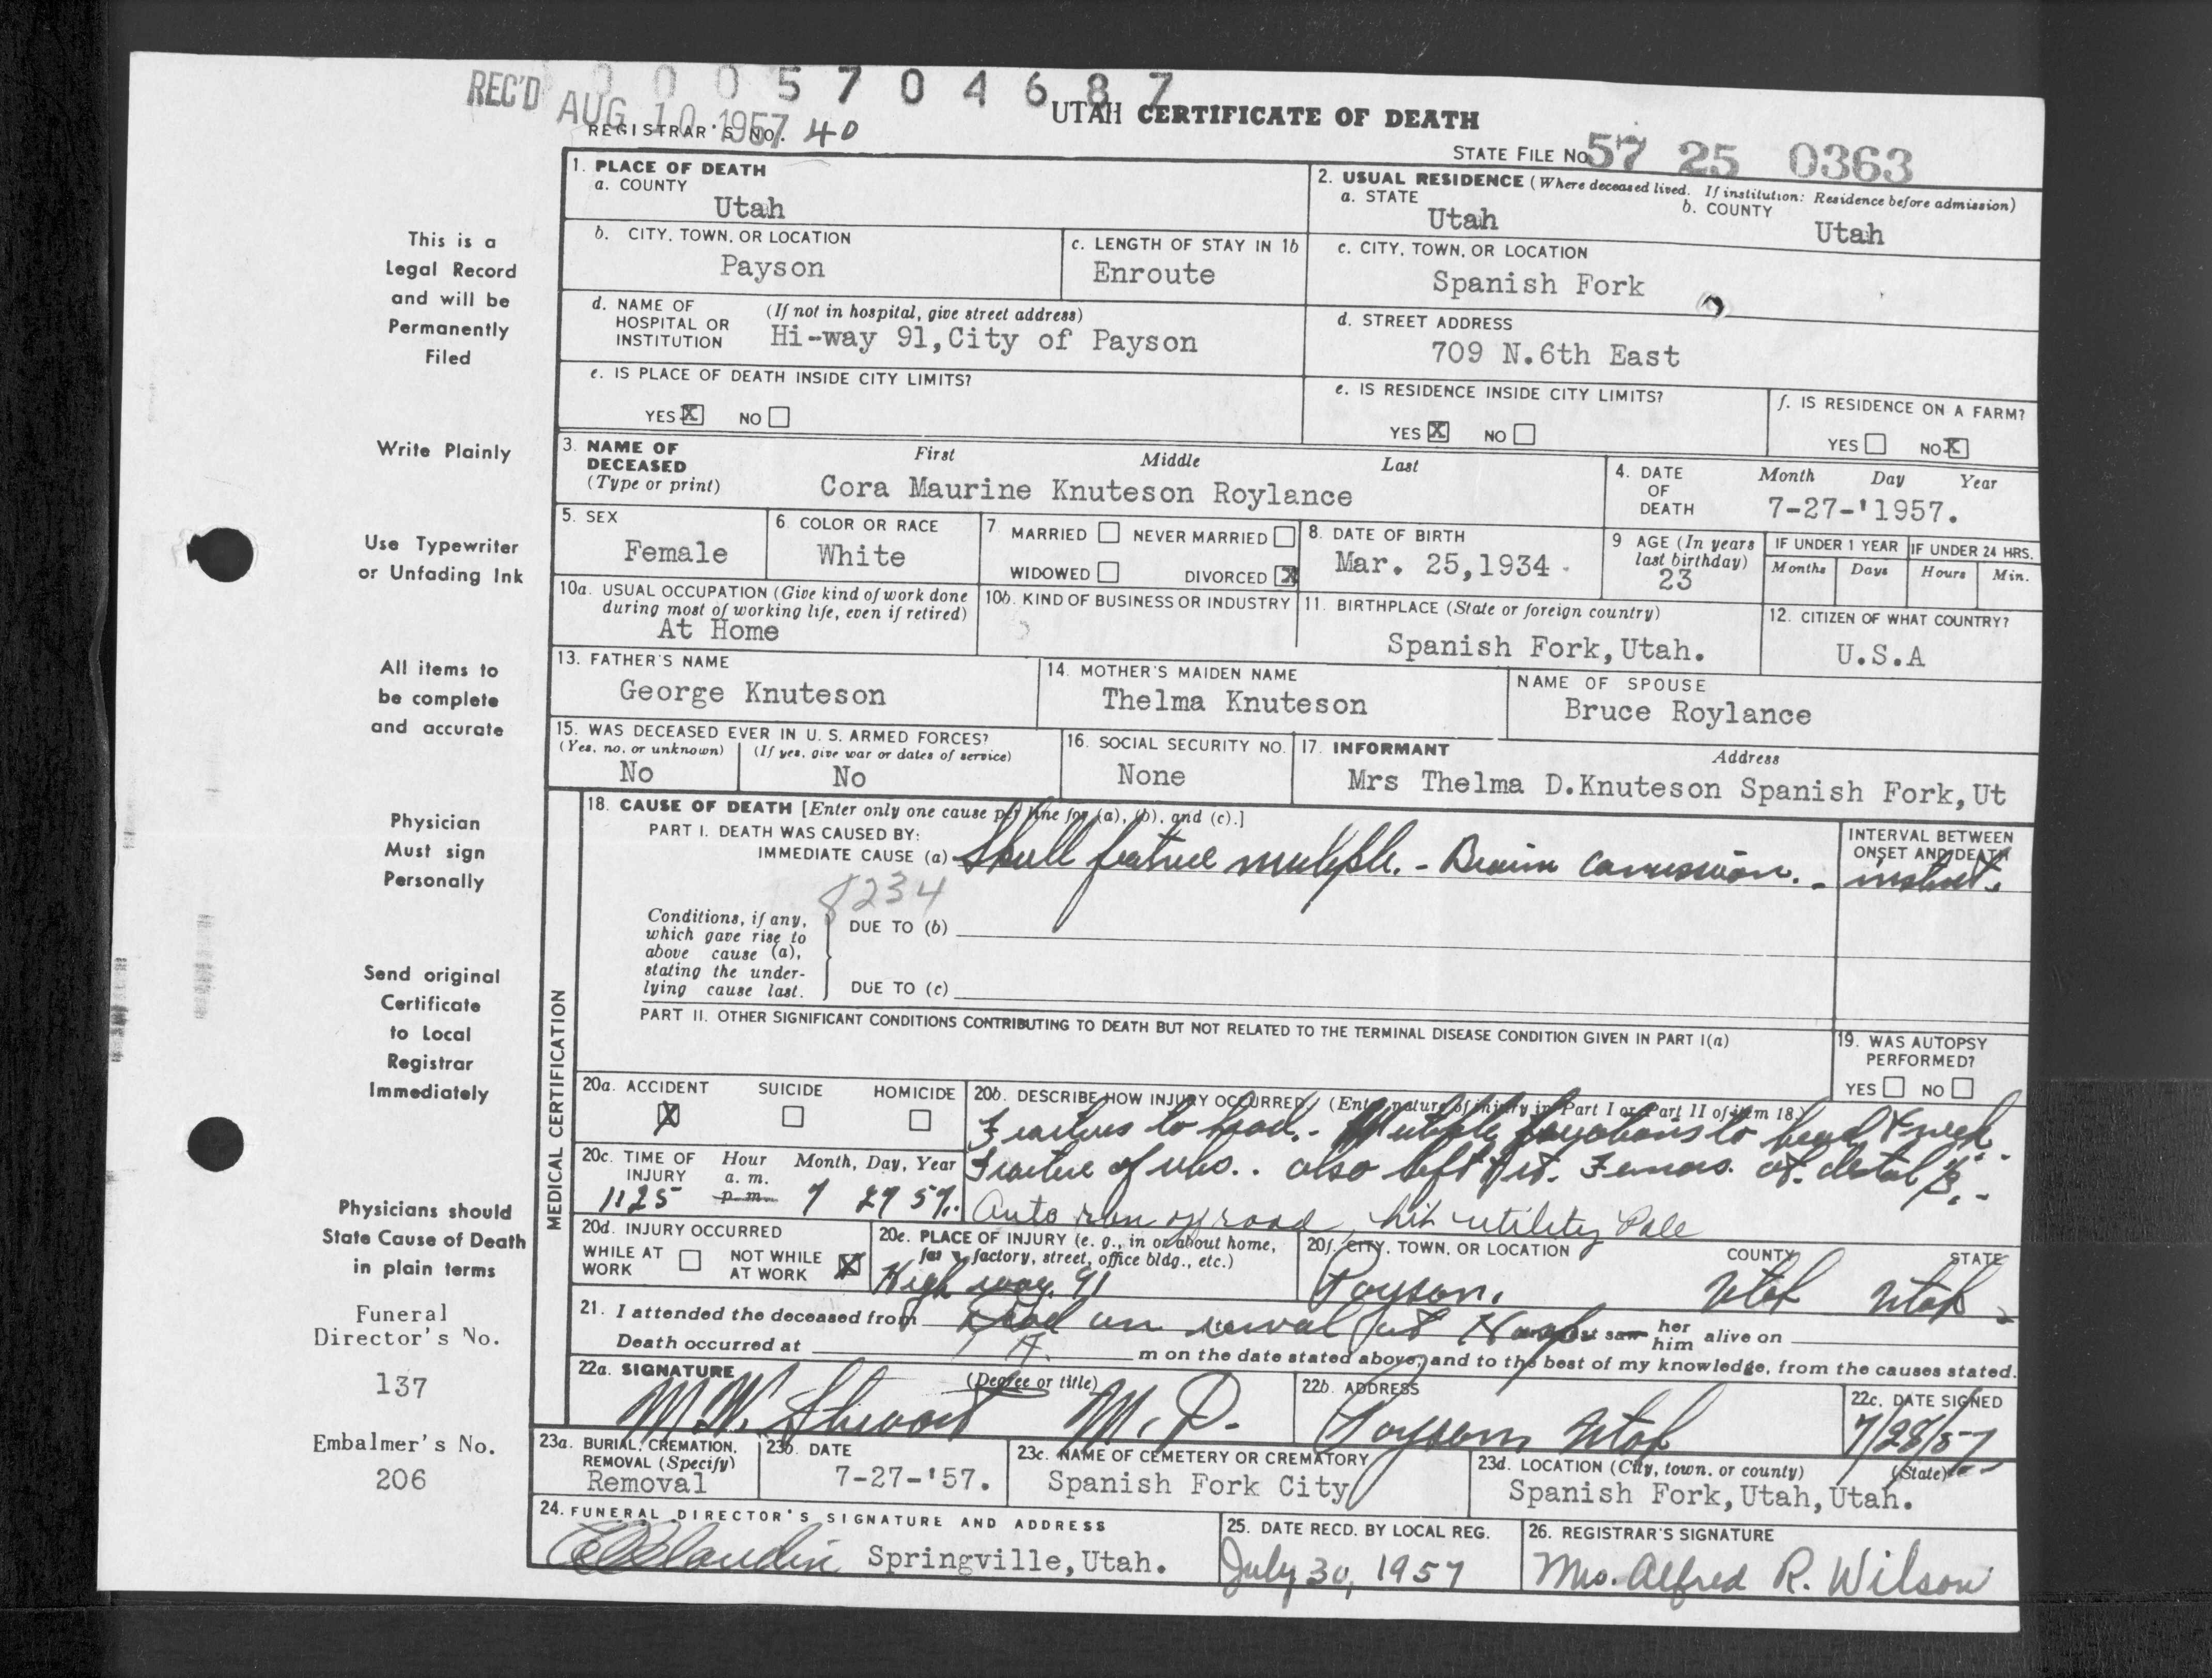 REC'D AUG 10 1957
0005704687
UTAH CERTIFICATE OF DEATH
REGISTRAR'S NO. 40
STATE FILE NO. 57 25 0363
This is a
Legal Record
and will be
Permanently
Filed
Write Plainly
Use Typewriter
or Unfading Ink
All items to
be complete
and accurate
Physician
Must sign
Personally
Send original
Certificate
to Local
Registrar
Immediately
Physicians should
State Cause of Death
in plain terms
Funeral
Director's No.
137
Embalmer's No.
206
1. PLACE OF DEATH
a. COUNTY
Utah
2. USUAL RESIDENCE (Where deceased lived. If institution: Residence before admission)
a. STATE
Utah
b. COUNTY
Utah
b. CITY, TOWN, OR LOCATION
Payson
c. LENGTH OF STAY IN 1b
Enroute
c. CITY, TOWN, OR LOCATION
Spanish Fork
d. NAME OF HOSPITAL OR INSTITUTION
(If not in hospital, give street address)
Hi-way 91,City of Payson
d. STREET ADDRESS
709 N.6th East
e. IS PLACE OF DEATH INSIDE CITY LIMITS?
YES X NO
e. IS RESIDENCE INSIDE CITY LIMITS?
YES X NO
f. IS RESIDENCE ON A FARM?
YES NO X
3. NAME OF DECEASED (Type or print)
First Middle Last
Cora Maurine Knuteson Roylance
4. DATE OF DEATH
Month Day Year
7-27-'1957.
5. SEX
Female
6. COLOR OR RACE
White
7. MARRIED NEVER MARRIED
WIDOWED DIVORCED X
8. DATE OF BIRTH
Mar. 25,1934
9 AGE (In years last birthday)
23
IF UNDER 1 YEAR
Months Days
IF UNDER 24 HRS.
Hours Min.
10a. USUAL OCCUPATION (Give kind of work done during most of working life, even if retired)
At Home
10b. KIND OF BUSINESS OR INDUSTRY
11. BIRTHPLACE (State or foreign country)
Spanish Fork,Utah.
12. CITIZEN OF WHAT COUNTRY?
U.S.A
13. FATHER'S NAME
George Knuteson
14. MOTHER'S MAIDEN NAME
Thelma Knuteson
NAME OF SPOUSE
Bruce Roylance
15. WAS DECEASED EVER IN U. S. ARMED FORCES?
(Yes, no, or unknown) (If yes, give war or dates of service)
No No
16. SOCIAL SECURITY NO.
None
17. INFORMANT Address
Mrs Thelma D.Knuteson Spanish Fork,Ut
MEDICAL CERTIFICATION
18. CAUSE OF DEATH [Enter only one cause per line for (a), (b), and (c).]
PART I. DEATH WAS CAUSED BY:
IMMEDIATE CAUSE (a) Skull multiple. -
INTERVAL BETWEEN ONSET AND DEATH
8234
Conditions, if any, which gave rise to above cause (a), stating the underlying cause last.
DUE TO (b)
DUE TO (c)
PART II. OTHER SIGNIFICANT CONDITIONS CONTRIBUTING TO DEATH BUT NOT RELATED TO THE TERMINAL DISEASE CONDITION GIVEN IN PART I(a)
19. WAS AUTOPSY PERFORMED?
YES NO
20a. ACCIDENT SUICIDE HOMICIDE
X
20b. DESCRIBE HOW INJURY OCCURRED. (Enter nature of injury in Part I or Part II of item 18.)
to head. - Multiple to head & neck
of also left & rt. at distal 1/3. -
Auto ran off road, hit utility Pole
20c. TIME OF INJURY
Hour Month, Day, Year
a. m.
p. m.
1125 7 27 57
20d. INJURY OCCURRED
WHILE AT WORK NOT WHILE AT WORK X
20e. PLACE OF INJURY (e. g., in or about home, farm, factory, street, office bldg., etc.)
Highway 91
20f. CITY, TOWN, OR LOCATION COUNTY STATE
Payson, Utah Utah
21. I attended the deceased from Dead on at and last saw her him alive on
Death occurred at m on the date stated above; and to the best of my knowledge, from the causes stated.
22a. SIGNATURE (Degree or title)
M.D.
22b. ADDRESS
Payson Utah
22c. DATE SIGNED
7/28/57
23a. BURIAL, CREMATION, REMOVAL (Specify)
Removal
23b. DATE
7-27-'57.
23c. NAME OF CEMETERY OR CREMATORY
Spanish Fork City
23d. LOCATION (City, town, or county) (State)
Spanish Fork,Utah,Utah.
24. FUNERAL DIRECTOR'S SIGNATURE AND ADDRESS
Springville,Utah.
25. DATE RECD. BY LOCAL REG.
July 30, 1957
26. REGISTRAR'S SIGNATURE
Mrs. Alfred R. Wilson